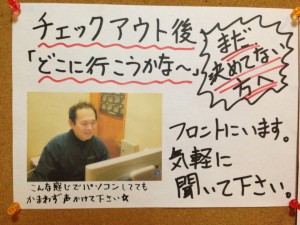 チェックアウト後
「どこに行こうかな～」
まだ
決めてない
方へ
フロントにいます。
気軽に
聞いて下さい。
こんな感じでパソコンしてても
かまわず声かけて下さい☆